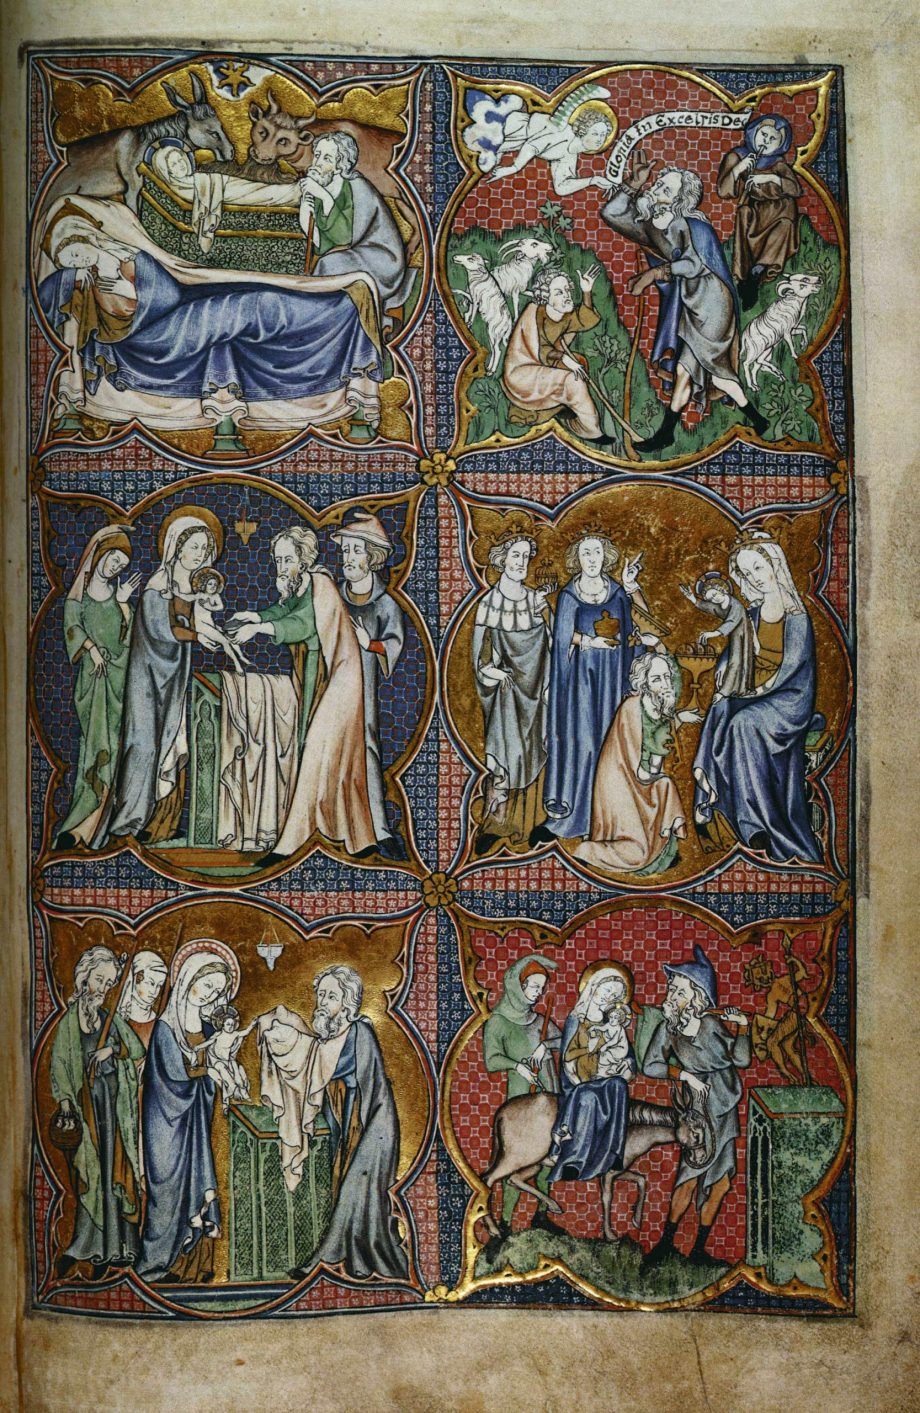 Gloria in excelsis D